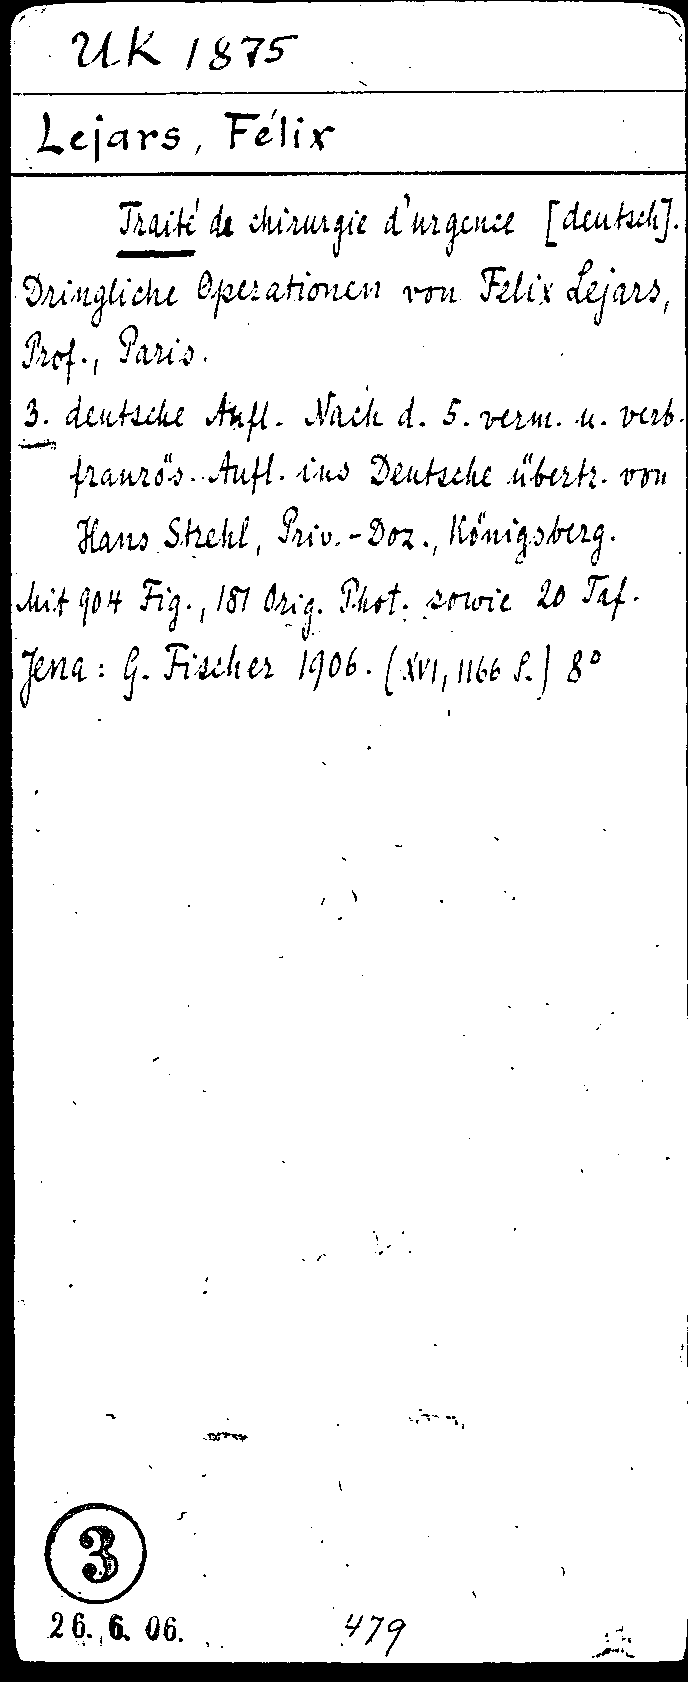 UK 1875
Lejars, Félix
Traité de chirurgie d'urgence [deutsch].
Dringliche Operationen von Felix Lejars,
Prof., Paris.
3. deutsche Aufl. Nach d. 5. verm. u. verb.
französ. Aufl. ins Deutsche übertr. von
Hans Strehl, Priv.-Doz., Königsberg.
Mit 904 Fig., 181 Orig. Phot. sowie 20 Taf.
Jena: G. Fischer 1906. (XVI, 1166 S.) 8°
3
26. 6. 06.
479